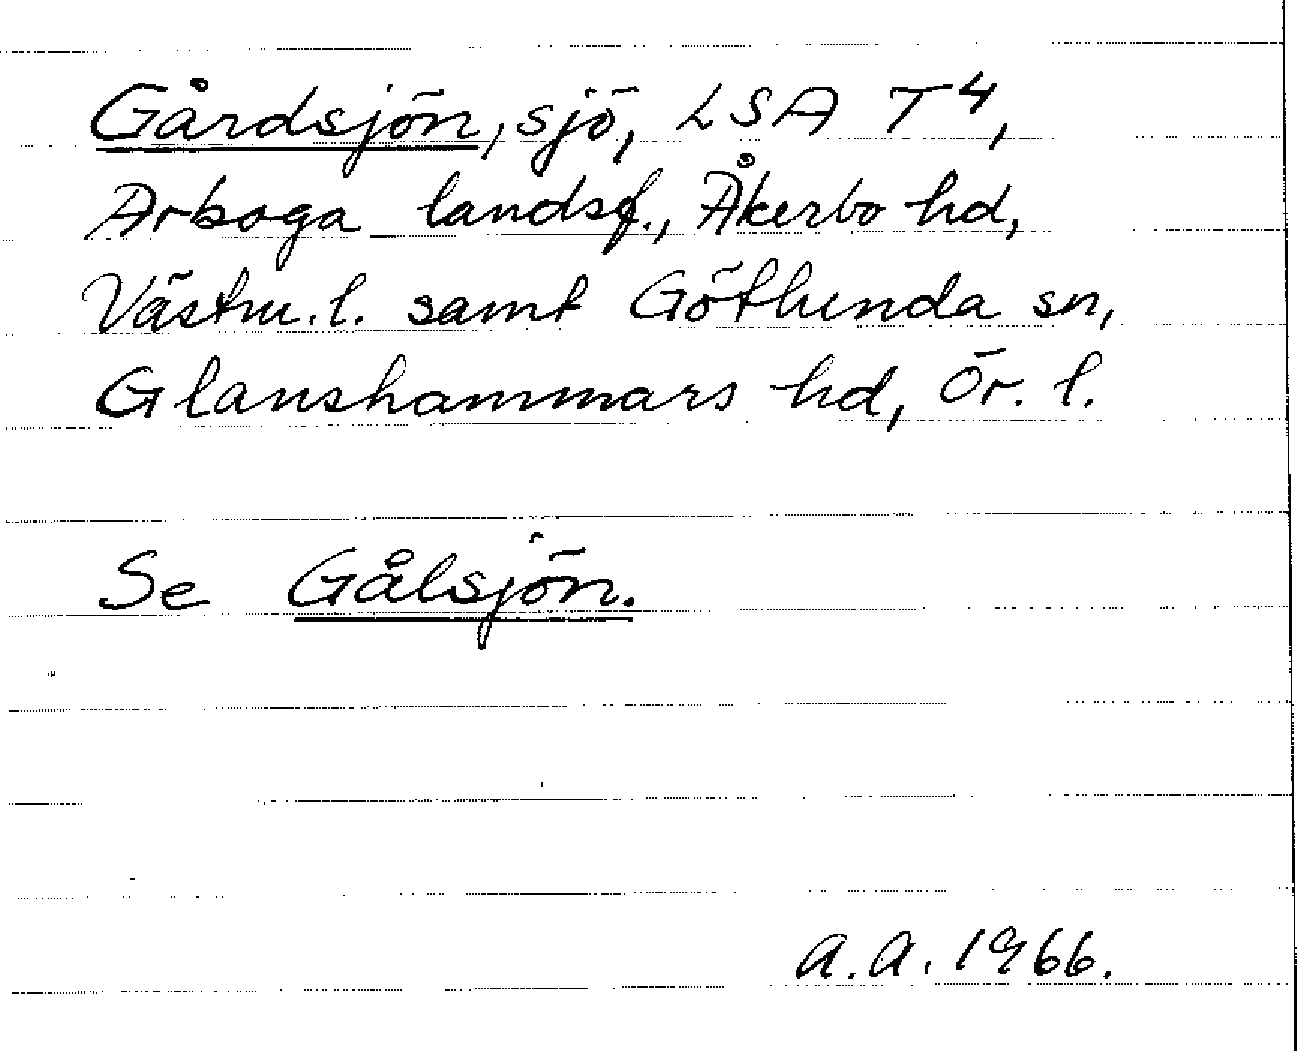 Gårdsjön, sjö, LSA T4,
Arboga landsf., Åkerbo hd,
Västm. l. samt Götlunda sn,
Glanshammars hd, Ör. l.
Se Gålsjön.
A.A. 1966.